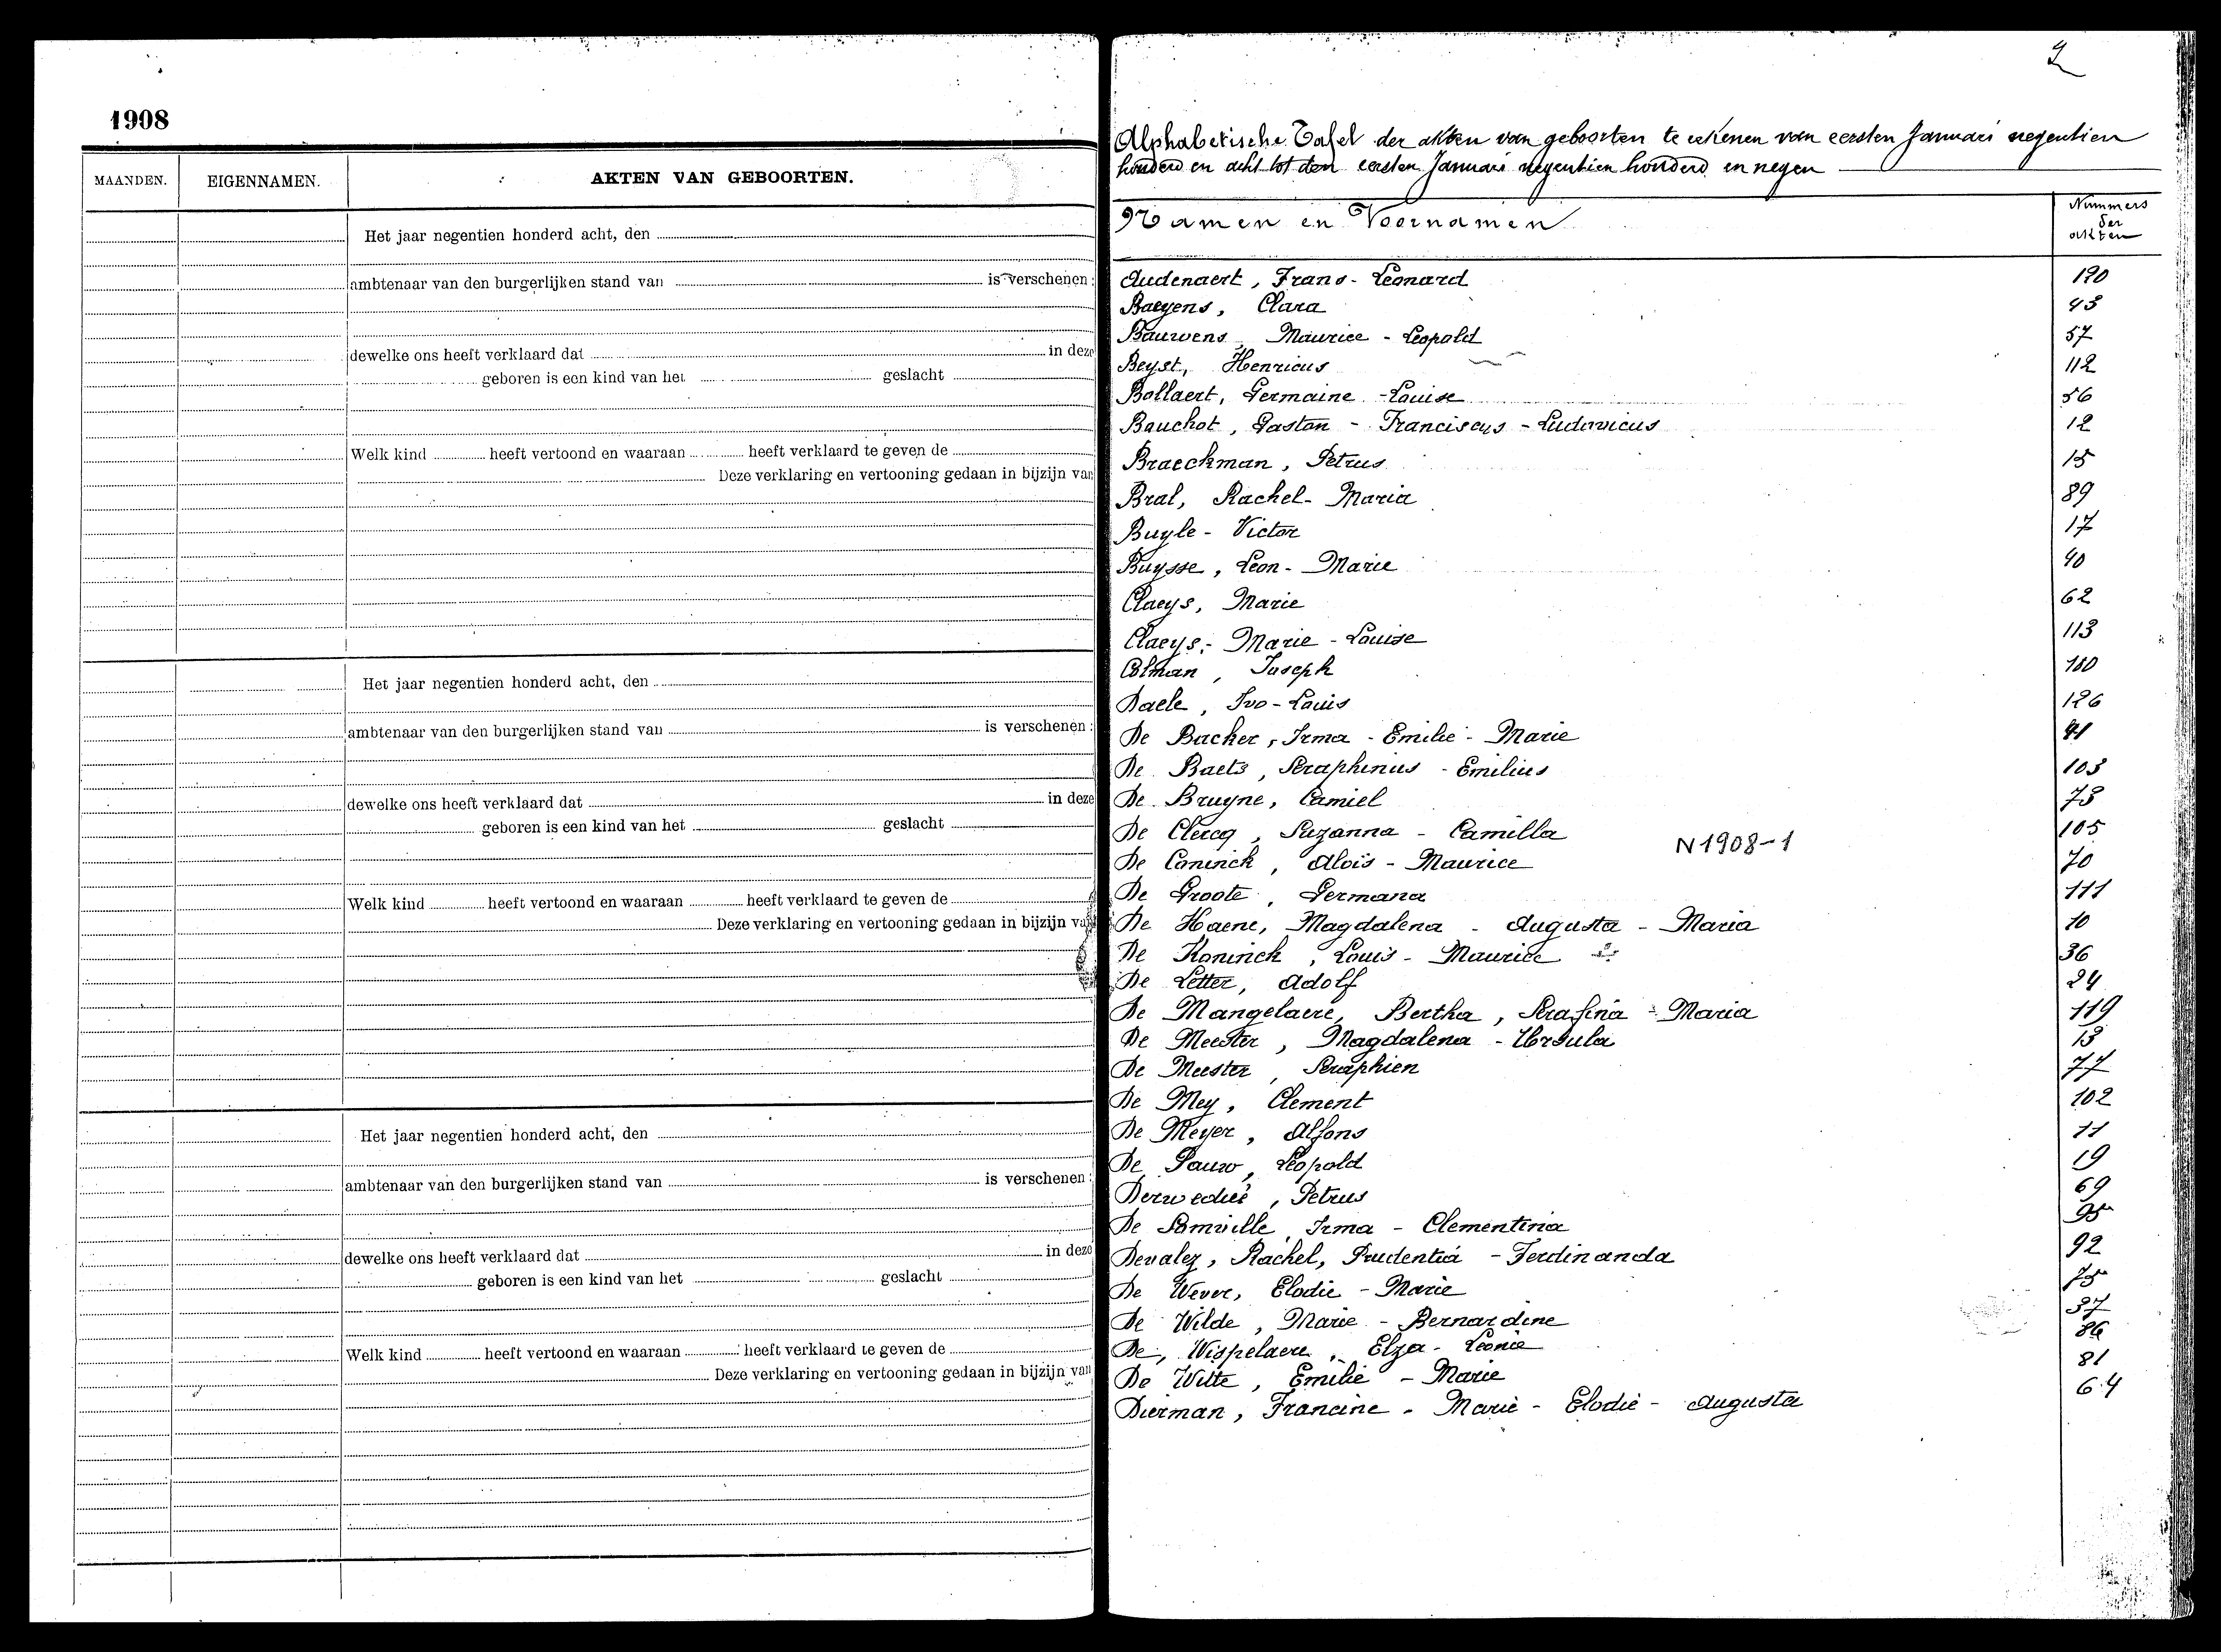 1908
MAANDEN. EIGENNAMEN. AKTEN VAN GEBOORTEN.
Het jaar negentien honderd acht, den
ambtenaar van den burgerlijken stand van is verschenen:
dewelke ons heeft verklaard dat in deze
geboren is een kind van het geslacht
Welk kind heeft vertoond en waaraan heeft verklaard te geven de
Deze verklaring en vertooning gedaan in bijzijn van
Het jaar negentien honderd acht, den
ambtenaar van den burgerlijken stand van is verschenen:
dewelke ons heeft verklaard dat in deze
geboren is een kind van het geslacht
Welk kind heeft vertoond en waaraan heeft verklaard te geven de
Deze verklaring en vertooning gedaan in bijzijn van
Het jaar negentien honderd acht, den
ambtenaar van den burgerlijken stand van is verschenen:
dewelke ons heeft verklaard dat in deze
geboren is een kind van het geslacht
Welk kind heeft vertoond en waaraan heeft verklaard te geven de
Deze verklaring en vertooning gedaan in bijzijn van
2
Alphabetische Tafel der akten van geboorten te rekenen van eersten Januari negentien
honderd en acht tot den eersten Januari negentien honderd en negen
Namen en Voornamen Nummers der akten
Audenaert, Frans-Leonard 120
Baeyens, Clara 43
Bauwens, Maurice-Leopold 57
Beyst, Henricus 112
Bollaert, Germaine-Louise 56
Bouchot, Gaston-Franciscus-Ludovicus 12
Braeckman, Petrus 15
Bral, Rachel-Maria 89
Buyle-Victor 17
Buysse, Leon-Marie 40
Claeys, Marie 62
Claeys,-Marie-Louise 113
Colman, Joseph 110
Daele, Ivo-Louis 126
De Backer, Irma-Emilie-Marie 41
De Baets, Seraphinus-Emilius 103
De Bruyne, Camiel 73
De Clercq, Suzanna-Camilla 105
N1908-1
De Coninck, Aloïs-Maurice 70
De Groote, Germana 111
De Haene, Magdalena-Augusta-Maria 10
De Koninck, Louis-Maurice 36
De Letter, Adolf 24
De Mangelaere, Bertha, Serafina-Maria 119
De Meester, Magdalena-Ursula 13
De Meester, Seraphien 77
De Mey, Clement 102
De Meyer, Alfons 11
De Pauw, Leopold 19
Derweduwé, Petrus 69
De Somville, Irma-Clementina 95
Devalez, Rachel, Prudentia-Ferdinanda 92
De Wever, Elodie-Marie 75
De Wilde, Marie-Bernardine 37
De, Wispelaere, Elza-Leonie 86
De Witte, Emilie-Marie 81
Dierman, Francine-Marie-Elodie-Augusta 64